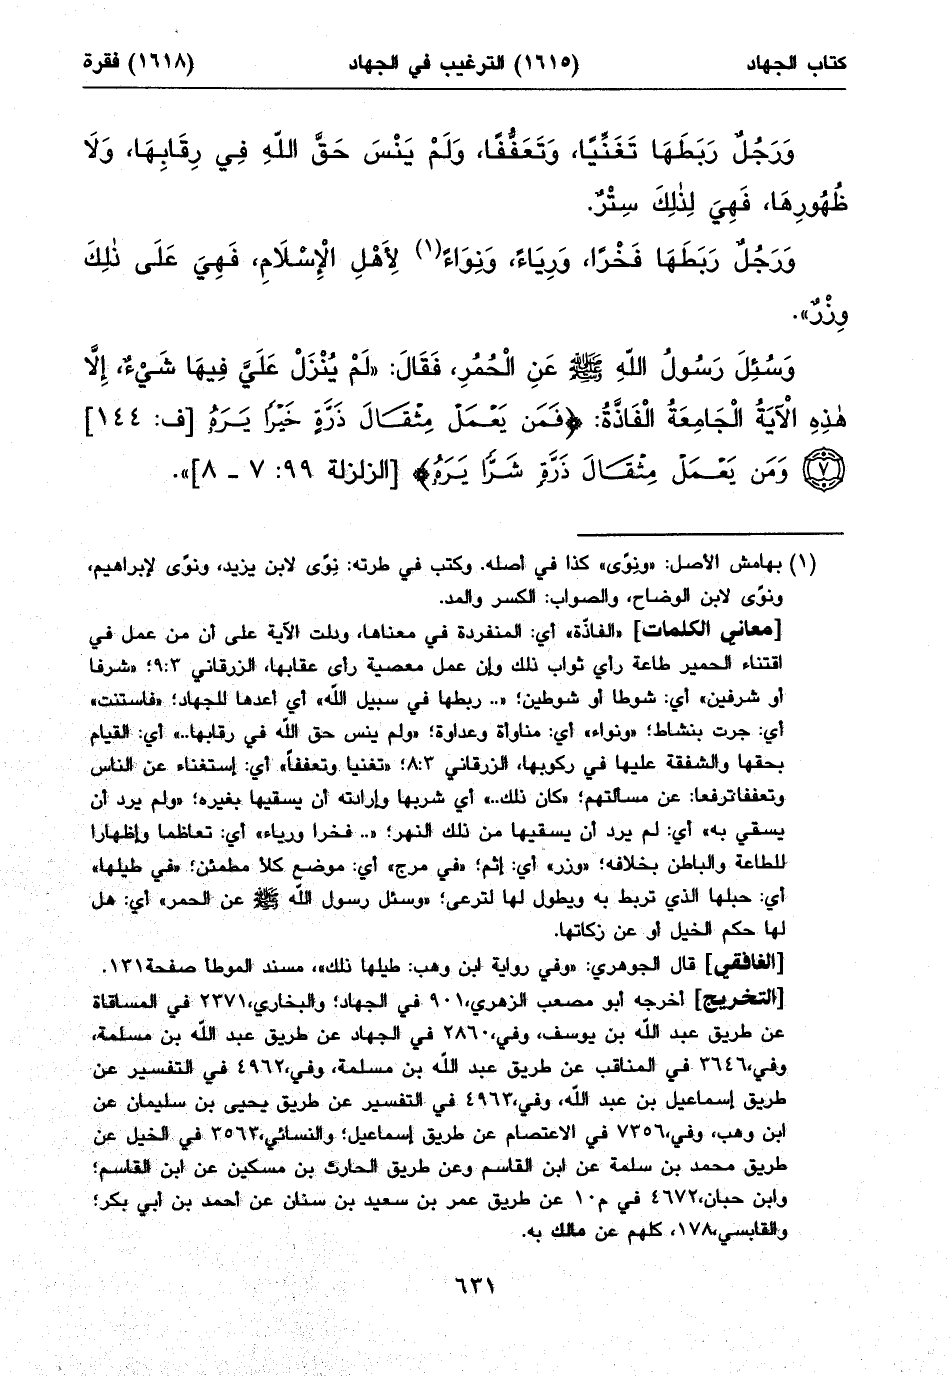 كتاب الجهاد (١٦١٥) الترغيب في الجهاد (١٦١٨) فقرة
وَرَجُلٌ رَبَطَهَا تَغَنِّيًا، وَتَعَفُّفًا، وَلَمْ يَنْسَ حَقَّ اللّهِ فِي رِقَابِهَا، وَلَا
ظُهُورِهَا، فَهِيَ لِذٰلِكَ سِتْرٌ.
وَرَجُلٌ رَبَطَهَا فَخْرًا، وَرِيَاءً، وَنِوَاءً(١) لِأَهْلِ الْإِسْلَامِ، فَهِيَ عَلَى ذٰلِكَ
وِزْرٌ».
وَسُئِلَ رَسُولُ اللّهِ ﷺ عَنِ الْحُمُرِ، فَقَالَ: «لَمْ يُنْزَلْ عَلَيَّ فِيهَا شَيْءٌ، إِلَّا
هٰذِهِ الْآيَةُ الْجَامِعَةُ الْفَاذَّةُ: ﴿فَمَن يَعْمَلْ مِثْقَالَ ذَرَّةٍ خَيْرًا يَرَهُ [ف: ١٤٤]
٧ وَمَن يَعْمَلْ مِثْقَالَ ذَرَّةٍ شَرًّا يَرَهُ﴾ [الزلزلة ٩٩: ٧ ـ ٨]».
(١) بهامش الأصل: «ونِوًى» كذا في أصله. وكتب في طرته: نِوًى لابن يزيد، ونوًى لإبراهيم،
ونوًى لابن الوضاح، والصواب: الكسر والمد.
[معاني الكلمات] «الفاذّة» أي: المنفردة في معناها، ودلت الآية على أن من عمل في
اقتناء الحمير طاعة رأي ثواب ذلك وإن عمل معصية رأى عقابها، الزرقاني ٩:٣؛ «شرفا
أو شرفين» أي: شوطا أو شوطين؛ «.. ربطها في سبيل اللّه» أي أعدها للجهاد؛ «فاستنت»
أي: جرت بنشاط؛ «ونواء» أي: مناوأة وعداوة؛ «ولم ينس حق اللّه في رقابها..» أي: القيام
بحقها والشفقة عليها في ركوبها، الزرقاني ٨:٣؛ «تغنيا وتعففاً» أي: إستغناء عن الناس
وتعففاترفعا: عن مسألتهم؛ «كان ذلك..» أي شربها وإرادته أن يسقيها بغيره؛ «ولم يرد أن
يسقي به» أي: لم يرد أن يسقيها من ذلك النهر؛ «.. فخرا ورياء» أي: تعاظما وإظهارا
للطاعة والباطن بخلافه؛ «وزر» أي: إثم؛ «في مرج» أي: موضع كلأ مطمئن؛ «في طيلها»
أي: حبلها الذي تربط به ويطول لها لترعى؛ «وسئل رسول اللّه ﷺ عن الحمر» أي: هل
لها حكم الخيل أو عن زكاتها.
[الغافقي] قال الجوهري: «وفي رواية ابن وهب: طيلها ذلك»، مسند الموطأ صفحة١٣١.
[التخريج] أخرجه أبو مصعب الزهري، ٩٠١ في الجهاد؛ والبخاري،٢٣٧١ في المساقاة
عن طريق عبد اللّه بن يوسف، وفي،٢٨٦٠ في الجهاد عن طريق عبد اللّه بن مسلمة،
وفي،٣٦٤٦ في المناقب عن طريق عبد اللّه بن مسلمة، وفي،٤٩٦٢ في التفسير عن
طريق إسماعيل بن عبد اللّه، وفي،٤٩٦٣ في التفسير عن طريق يحيى بن سليمان عن
ابن وهب، وفي،٧٣٥٦ في الاعتصام عن طريق إسماعيل؛ والنسائي،٣٥٦٣ في الخيل عن
طريق محمد بن سلمة عن ابن القاسم وعن طريق الحارث بن مسكين عن ابن القاسم؛
وابن حبان،٤٦٧٢ في م١٠ عن طريق عمر بن سعيد بن سنان عن أحمد بن أبي بكر؛
والقابسي،١٧٨، كلهم عن مالك به.
٦٣١